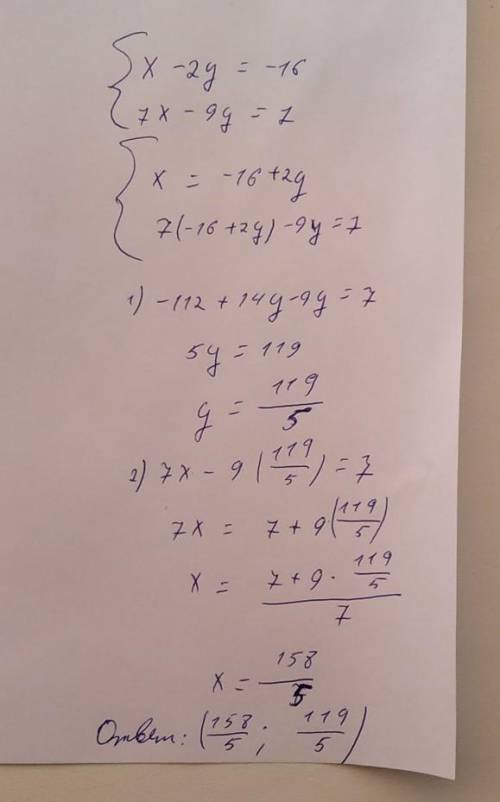 { x - 2y = -16
7x - 9y = 7
{ x = -16 + 2y
7(-16 + 2y) - 9y = 7
1) -112 + 14y - 9y = 7
5y = 119
y = 119/5
2) 7x - 9(119/5) = 7
7x = 7 + 9(119/5)
x = (7 + 9 · 119/5)/7
x = 158/5
Ответ: (158/5 ; 119/5)